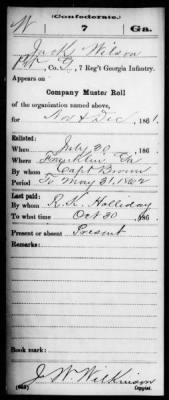 (Confederate.)
W 7 Ga.
Jack Wilson
Pvt, Co. , 7 Reg't Georgia Infantry.
Appears on
Company Muster Roll
of the organization named above,
for Nov & Dec, 1861.
Enlisted:
When July 30, 186 .
Where Franklin Ga
By whom Capt Brown
Period To May 31, 1862
Last paid:
By whom R. K. Holliday
To what time Oct 30, 186 .
Present or absent Present
Remarks:
Book mark:
J. W. Wilkinson
Copyist.